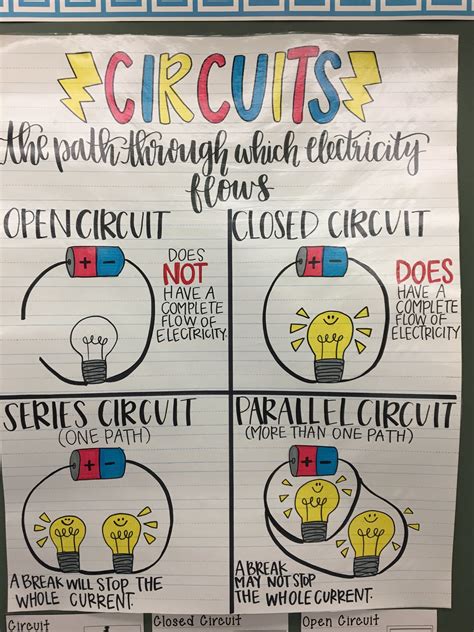 CIRCUITS
the path through which electricity
flows
OPEN CIRCUIT
+ -
DOES
NOT
HAVE A
COMPLETE
FLOW OF
ELECTRICITY.
CLOSED CIRCUIT
+ -
DOES
HAVE A
COMPLETE
FLOW OF
ELECTRICITY
SERIES CIRCUIT
(ONE PATH)
+ -
A BREAK WILL STOP THE
WHOLE CURRENT.
PARALLEL CIRCUIT
(MORE THAN ONE PATH)
+ -
A BREAK
MAY NOT STOP
THE WHOLE CURRENT.
Circuit
Closed Circuit
Open Circuit